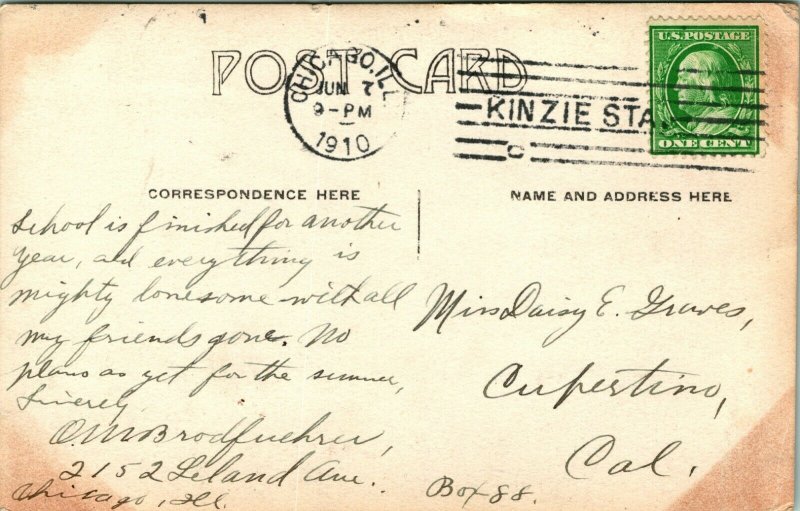 POST CARD
CHICAGO, ILL.
JUN 7
9-PM
1910
KINZIE STA
C
U.S. POSTAGE
ONE CENT
CORRESPONDENCE HERE
NAME AND ADDRESS HERE
School is finished for another
year, and everything is
mighty lonesome with all
my friends gone. No
plans as yet for the summer,
Sincerely,
O.M. Brodfuehrer,
2152 Leland Ave.
Chicago, Ill.
Miss Daisy E. Graves,
Cupertino,
Cal.
Box 88.